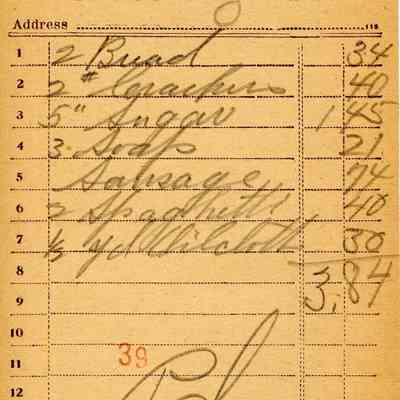 Address
1 2 Bread 34
2 2# Crackers 40
3 5" Sugar 1 45
4 3 Soap 21
5 Sausage 74
6 2 Spaghetti 40
7 ½ yd Oilcloth 30
8 3.84
9
10
11 39
12